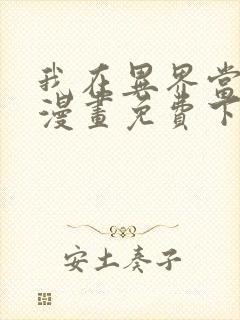 我在異界當
漫畫免費下
安土奏子